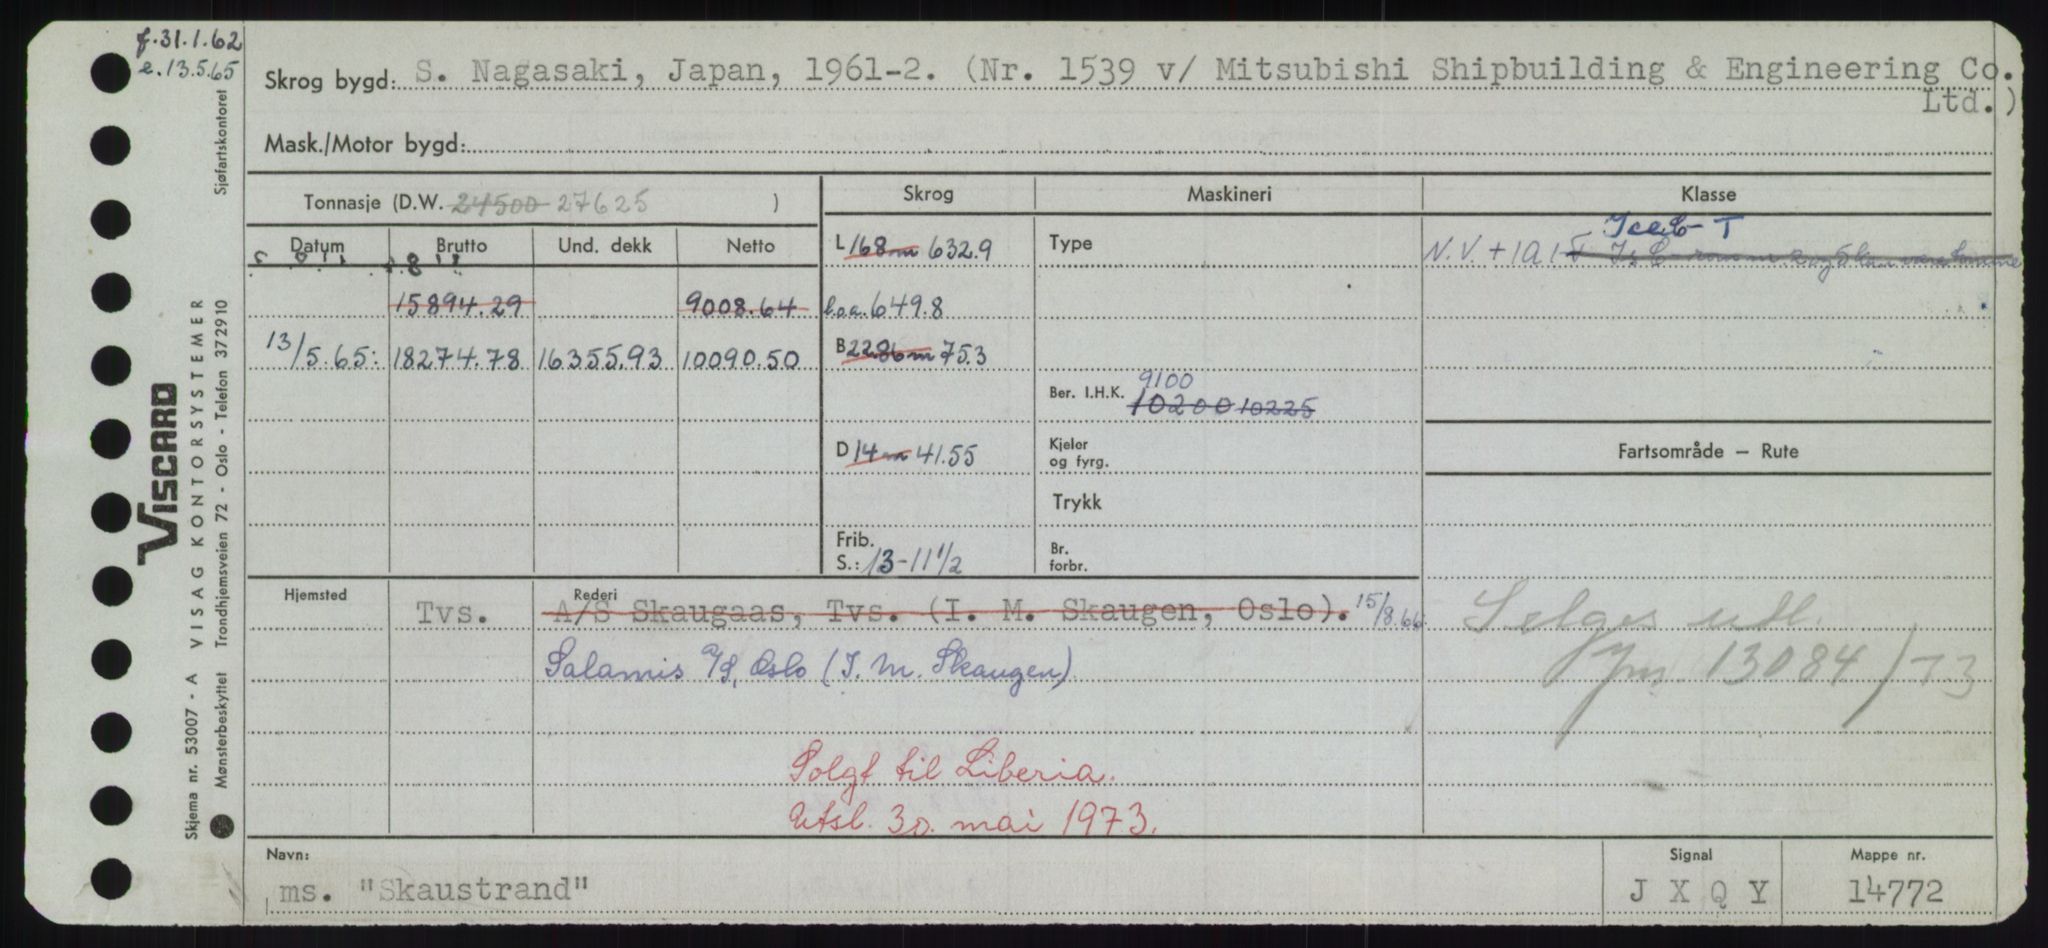 f. 31.1.62
e. 13.5.65
Sjøfartskontoret
Skrog bygd: S. Nagasaki, Japan, 1961-2. (Nr. 1539 v/ Mitsubishi Shipbuilding & Engineering Co. Ltd.)
Mask./Motor bygd:
Tonnasje (D.W. 24500 27625 )
Skrog
Maskineri
Klasse
Datum Brutto Und. dekk Netto
15894.29 9008.64
13/5.65: 18274.78 16355.93 10090.50
L 168m 632.9
l.o.a. 649.8
B 22.86m 75.3
D 14m 41.55
Frib.
S.: 13-11 1/2
Type
9100
Ber. I.H.K. 10200 10225
Kjeler
og fyrg.
Trykk
Br.
forbr.
Ice C - T
N.V. + 1A1
Fartsområde – Rute
Hjemsted
Rederi
Tvs. A/S Skaugaas, Tvs. (I. M. Skaugen, Oslo). 15/8.66
Salamis A/S, Oslo (I. M. Skaugen)
Selges utl.
Jnr 13084/73
Solgt til Liberia.
Utsl. 30. mai 1973.
Navn:
ms. "Skaustrand"
Signal
J X Q Y
Mappe nr.
14772
VISCARD
VISAG KONTORSYSTEMER
Trondhjemsveien 72 - Oslo - Telefon 372910
Skjema nr. 53007 - A
Mønsterbeskyttet